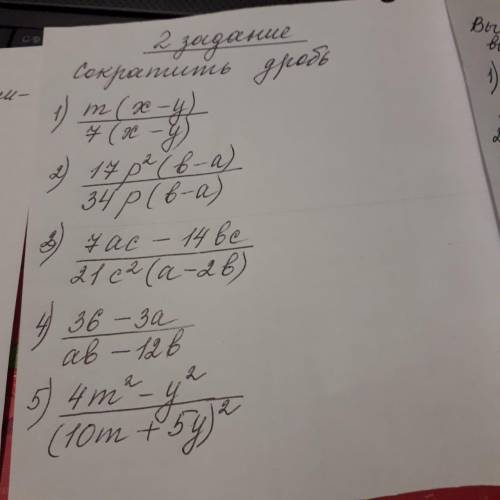 2 задание
Сократить дробь
1) m(x-y) / 7(x-y)
2) 17p²(b-a) / 34p(b-a)
3) 7ac - 14bc / 21c²(a-2b)
4) 36 - 3a / ab - 12b
5) 4m² - y² / (10m + 5y)²
Вы
1)